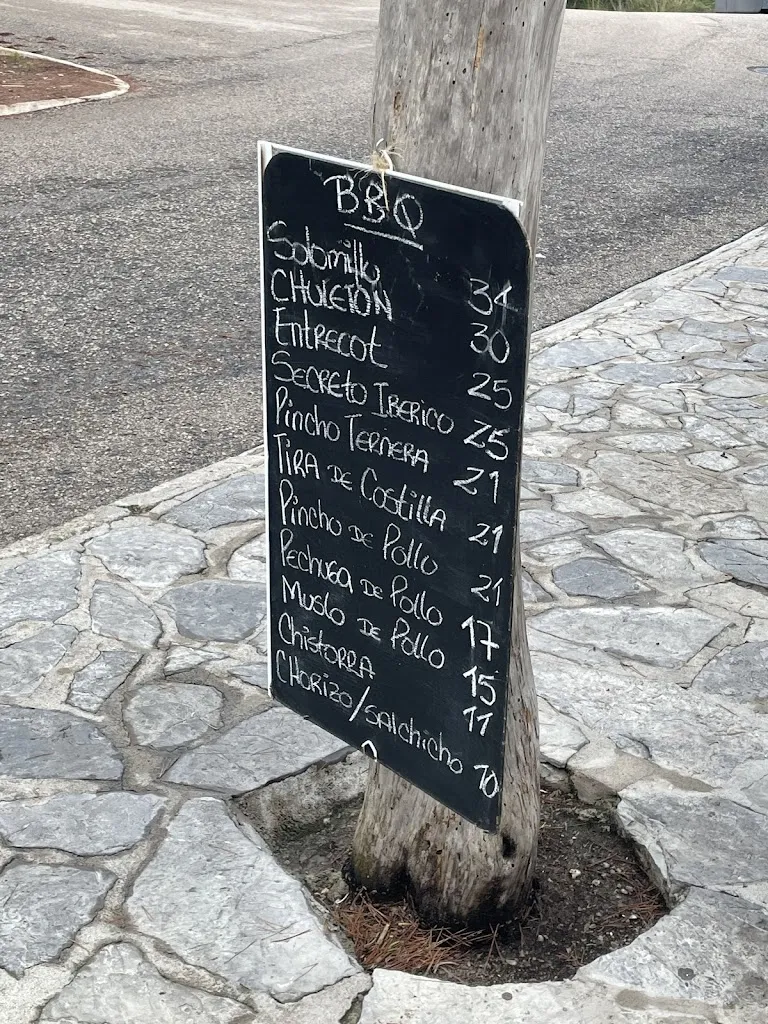 BBQ
Solomillo 34
CHULETON 30
Entrecot 25
Secreto Iberico 25
Pincho Ternera 21
Tira de Costilla 21
Pincho de Pollo 21
Pechuga de Pollo 17
Muslo de Pollo 15
Chistorra 11
Chorizo/Salchicho 10